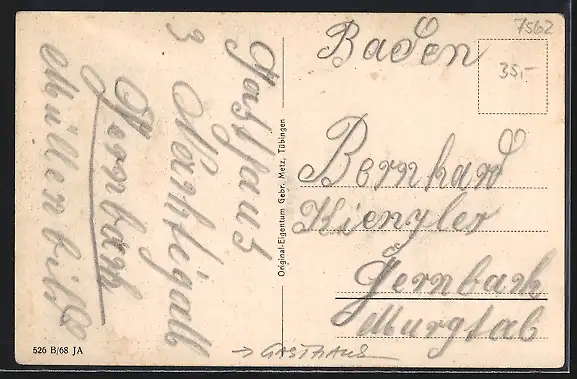 Gasthaus
z Nachtigall
Gernbach
Müllenbild
Original-Eigentum Gebr. Metz, Tübingen
Baden
7562
35,-
Bernhard
Kienzler
Gernbach
Murgtal
526 B/68 JA
→ GASTHAUS